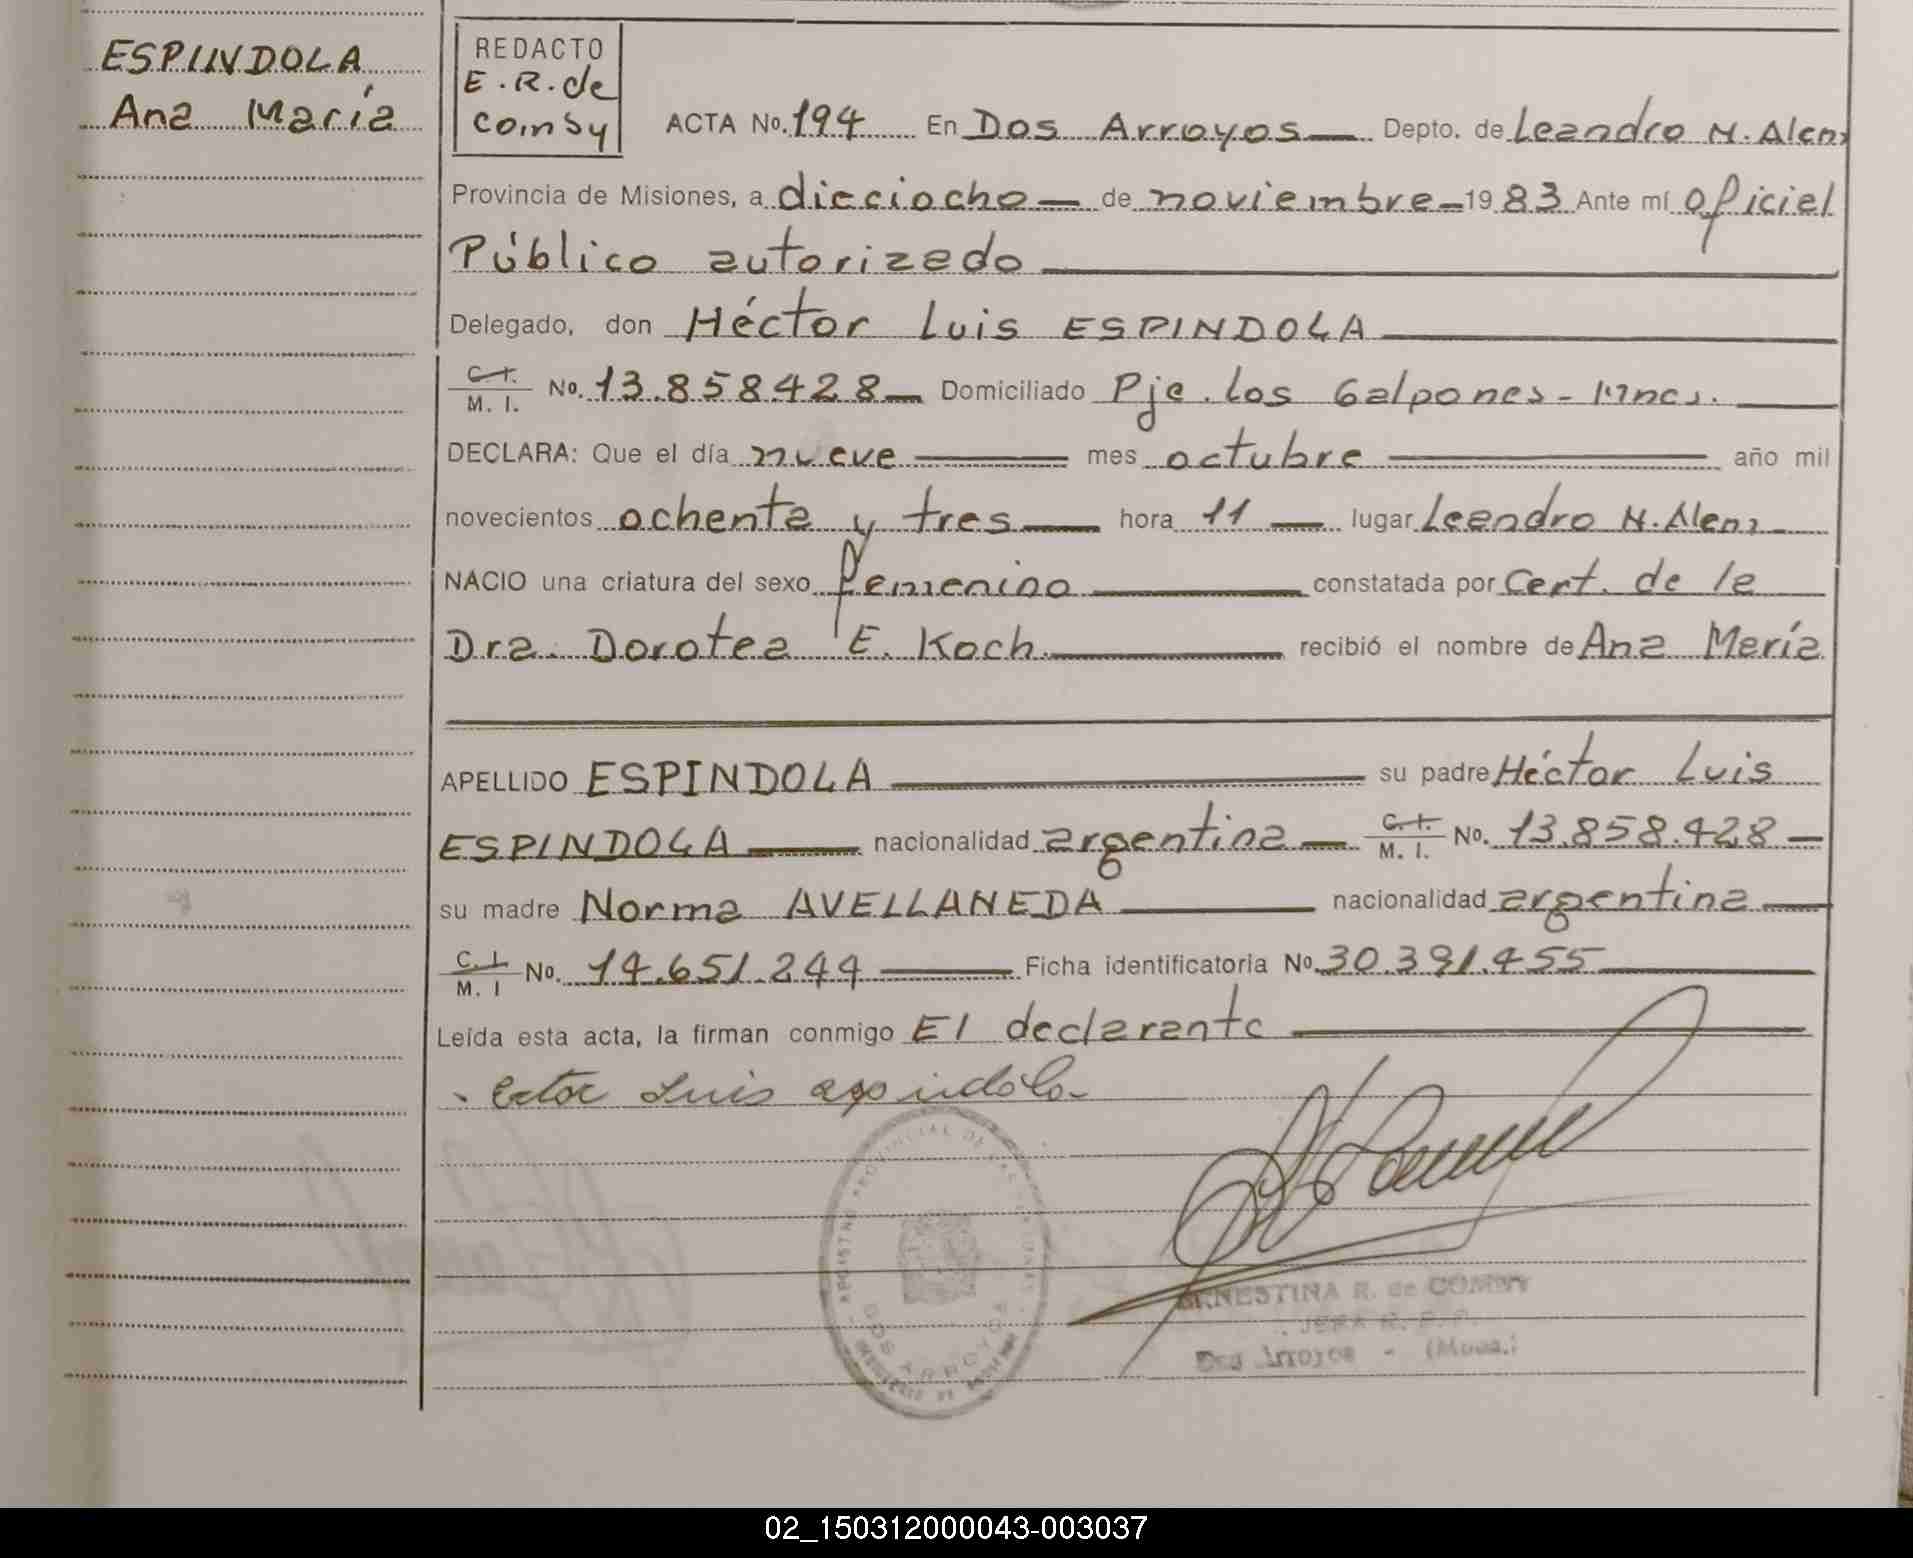 ESPINDOLA
Ana María
REDACTO
E.R. de
Comby
ACTA No. 194 En Dos Arroyos Depto. de Leandro N. Alem
Provincia de Misiones, a dieciocho de noviembre 1983 Ante mí Oficial
Público autorizado
Delegado, don Héctor Luis ESPINDOLA
C.I. M. I. No. 13.858.428 Domiciliado Pje. Los Galpones - Mnes.
DECLARA: Que el día nueve mes octubre año mil
novecientos ochenta y tres hora 11 lugar Leandro N. Alem
NACIO una criatura del sexo femenino constatada por Cert. de la
Dra. Dorotea E. Koch recibió el nombre de Ana María
APELLIDO ESPINDOLA su padre Héctor Luis
ESPINDOLA nacionalidad argentina C.I. M. I. No. 13.858.428
su madre Norma AVELLANEDA nacionalidad argentina
C.I. M. I No. 14.651.244 Ficha identificatoria No. 30.391.455
Leída esta acta, la firman conmigo El declarante
ector Luis espindola
DOS ARROYOS
ERNESTINA R. de COMBY
JEFA R. P. P.
Dos Arroyos - (Mnes.)
02_150312000043-003037